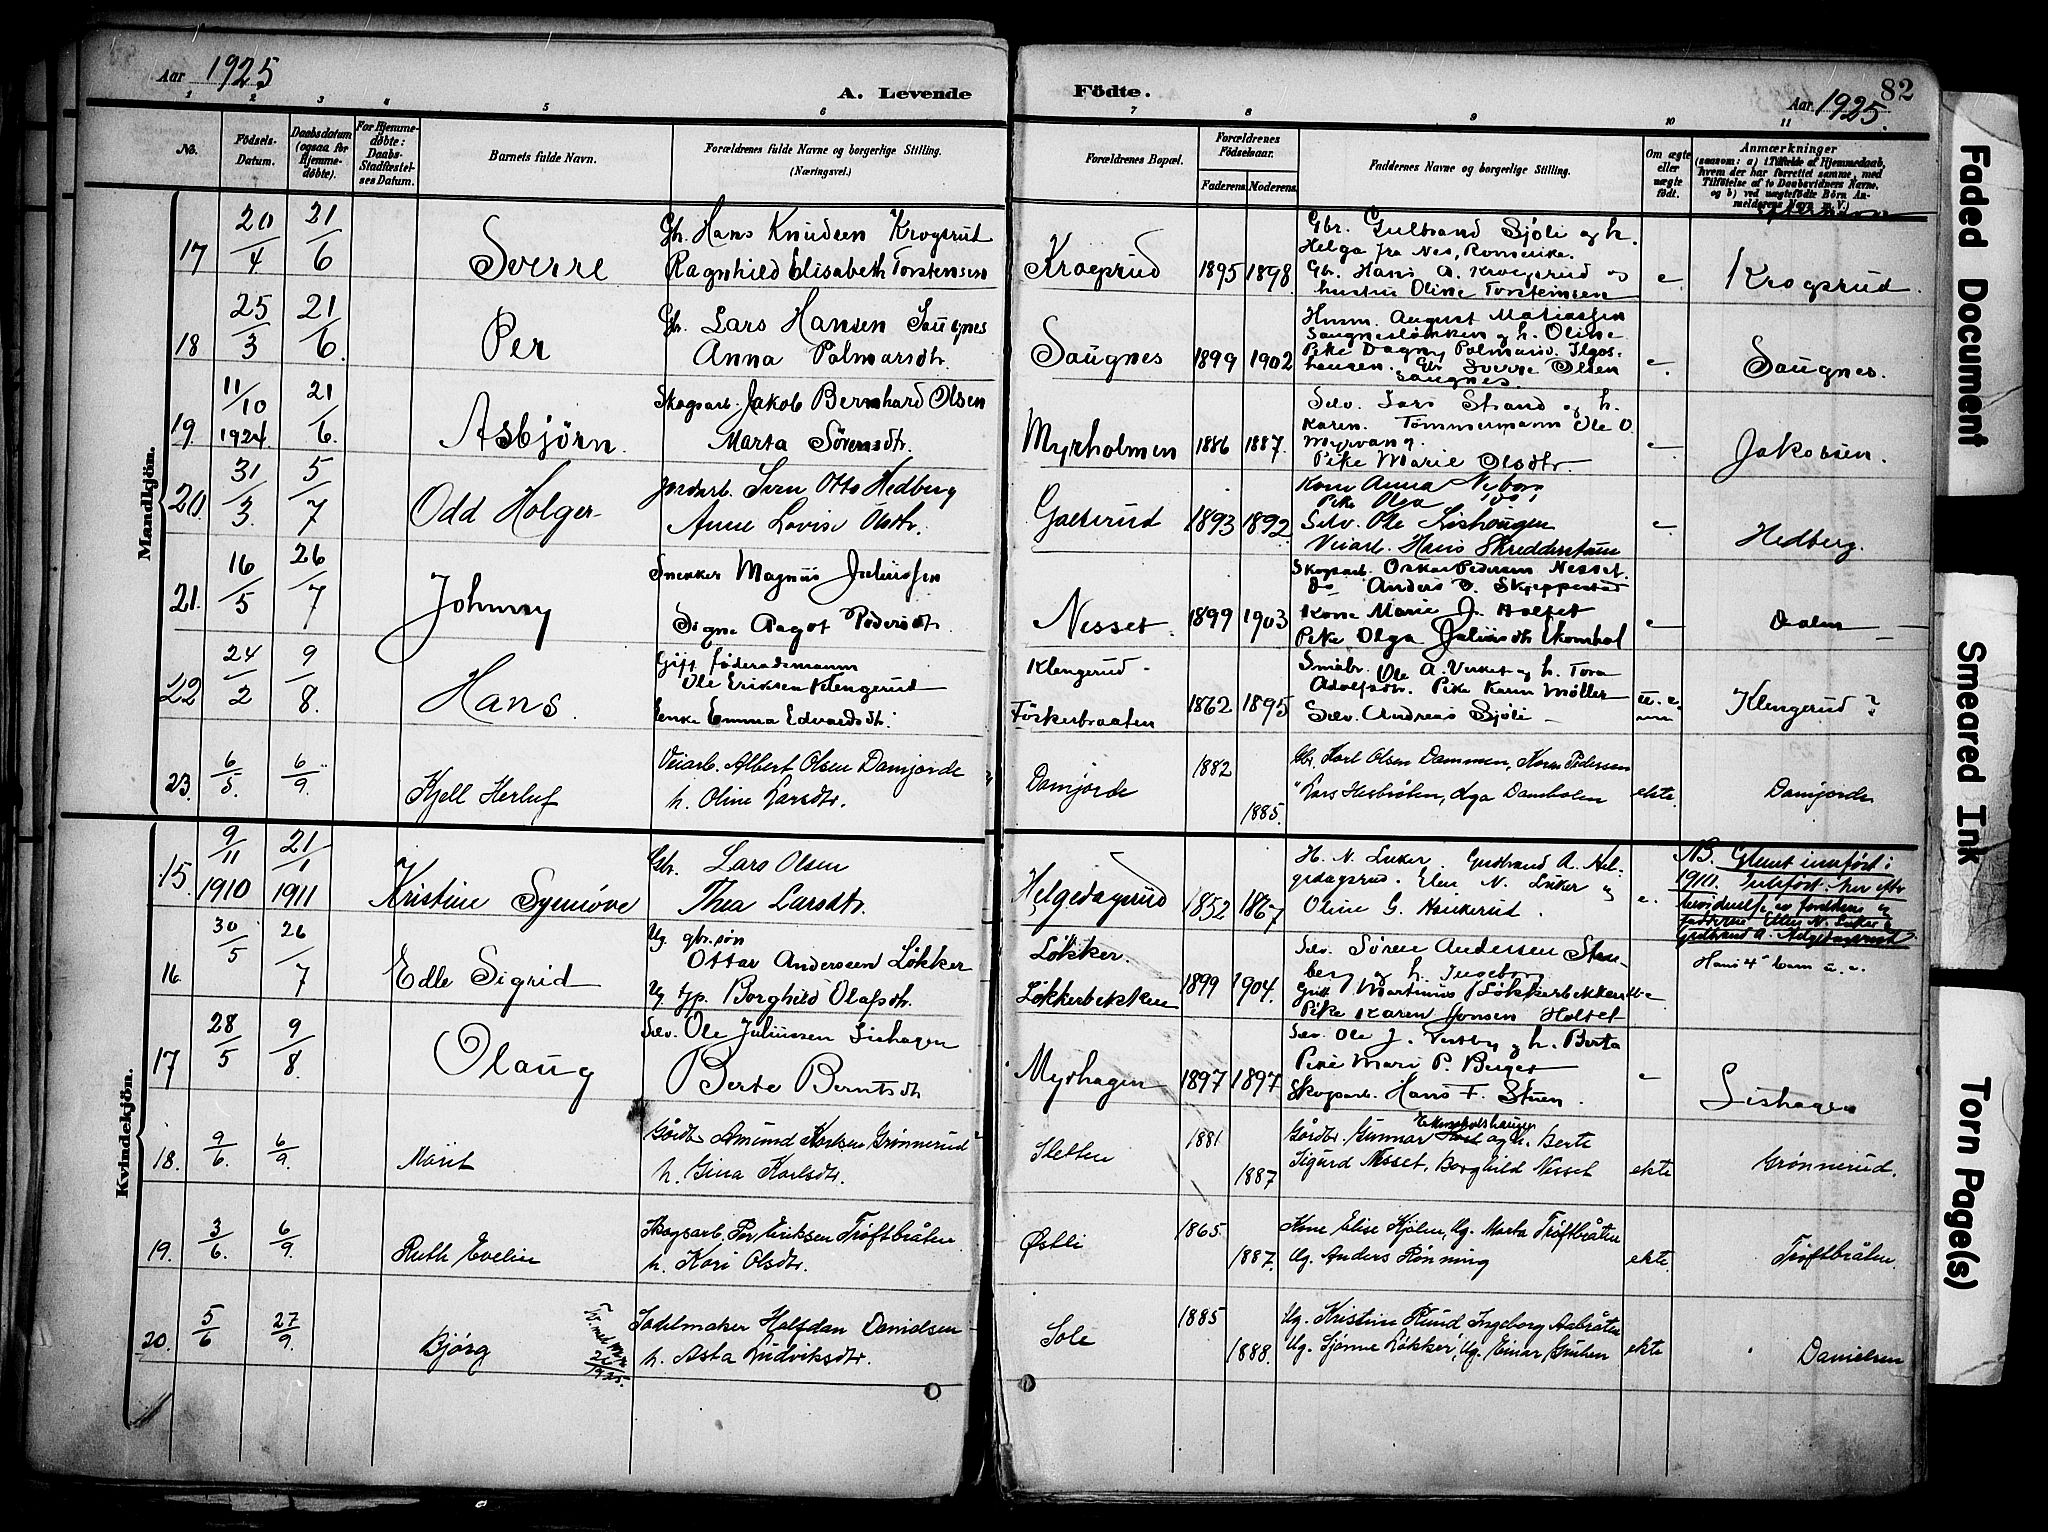 Aar 1925
A. Levende Födte.
Aar 1925.
82
1 2 3 4 5 6 7 8 9 10 11
No.
Födsels-Datum.
Daabsdatum (ogsaa for Hjemme-döbte).
For Hjemme-döbte: Daabs-Stadfæstel-ses Datum.
Barnets fulde Navn.
Forældrenes fulde Navne og borgerlige Stilling. (Næringsvei.)
Forældrenes Bopæl.
Forældrenes Födselsaar.
Faderens. Moderens.
Faddernes Navne og borgerlige Stilling.
Om ægte eller uægte födt.
Anmærkninger
(saasom: a) i Tilfælde af Hjemmedaab, hvem der har forrettet samme, med Tilföielse af to Daabsvidners Navne, og b) ved uægtefödte Börn An-melderens Navn m. V.)
Mandkjön.
17 20/4 21/6 Sverre
Gb. Hans Knudsen Krogsrud
Ragnhild Elisabeth Torstensen
Krogsrud 1895 1898
Gbr. Gulbrand Sjöli og h.
Helga fra Nes, Romerike.
Gb. Hans A. Krogsrud og
hustru Oline Torsteinsen
e. Krogsrud.
18 25/3 21/6. Per
Gb. Lars Hansen Saugnes
Anna Palmarsdtr.
Saugnes 1899 1902
Husm. August Matiassen
Saugneslökken og h. Oline
Pike Dagny Palmarsd.
Sverre Olsen
Saugnes.
e. Saugnes.
19 11/10 1924 21/6. Asbjörn.
Skogsarb. Jakob Bernhard Olsen
Marta Sörensdtr.
Myrholmen 1886 1887.
Selv. Lars Strand og h.
Karen. Tömmermann Ole O.
Myrvang.
Pike Marie Olsdtr.
e Jakobsen.
20. 31/3. 5/7 Odd Holger
Jordarb. Sven Otto Hedberg
Anne Lovise Olsdtr.
Galterud 1893 1892
Kone Anna Nyborg
Pike Olga
Selv. Ole Lishaugen
Veiarb. Hans Skredderstuen
e Hedberg.
21. 16/5 26/7 Johnny
Snekker Magnus Juliussen
Signe Aagot Pedersdtr.
Nesset. 1899 1903
Skogsarb. Oskar Pedersen Nesset.
do Anders O. Skjeppestad
Kone Marie J. Holset
Pike Olga Juliusdtr. Ekornhol
e Dalen
22 24/2 9/8. Hans.
Gift föderaadsmann
Ole Eriksen Klengerud
Enke Emma Edvardsdtr.
Klengerud
Föskerbraaten 1862 1895
Småbr. Ole A. Verket og h. Tora
Adolfsdtr. Pike Karen Möller
Selv. Andreas Sjöli
u. e. Klengerud?
23. 6/5. 6/9. Kjell Herluf
Veiarb. Albert Olsen Damjorde
h. Oline Larsdtr.
Damjorde 1882 1885.
Gbr. Karl Olsen Dammen, Karen Pedersen
" Lars Hesbråten, Aga Damholen
ekte. Damjorde
Kvindekjön.
15. 9/11 1910 21/1 1911 Kristine Synnöve
Gb. Lars Olsen
Thea Larsdtr.
Helgedagsrud 1852 1867
H. N. Luker. Gudbrand A. Hel-
gedagsrud. Elen N. Luker og
Oline G. Haukerud.
e.
NB. Glemt innfört i
1910. Innfört her efter
bevidnelse av foreldrene og
fadderne Ellen N. Luker og
Gudbrand A. Helgedagsrud
16. 30/5 26/7 Edle Sigrid
Ug. gbr.sön
Ottar Anderssen Lökker
Ug. tjp. Borghild Olafsdtr.
Lökker.
Lökkerbekken 1899 1904.
Selv. Sören Andersen Sten-
berg og h. Ingeborg
Gift Martinius Lökkerbekken
Pike Karen Jonsen Holtet
Hans 4de barn u. e.
17 28/5 9/8. Olaug
Selv. Ole Juliussen Lishagen
Berte Berntsdtr.
Myrhagen 1897 1897
Selv. Ole J. Vestby og h. Berta
Pike Mari P. Berget
Skogsarb. Hans F. Stuen.
e Lishagen
18. 9/6. 6/9. Marit
Gårdbr. Amund Karlsen Grönnerud
h. Gina Karlsdtr.
Sletten 1881 1887
Gårdbr. Gunnar Ekornholshaugen og h. Berte
Sigurd Nesset, Borghild Nesset
ekte Grönnerud.
19. 3/6. 6/9. Ruth Evelin
Skogsarb. Per Eriksen Tröftbråten
h. Kari Olsdtr.
Østli 1865. 1887.
Kone Elise Kjölen, Ug. Marta Tröftbråten
Ug. Anders Rönning
ekte. Tröftbråten.
20. 5/6 27/9 Bjørg
Sadelmaker Halfdan Danielsen
h. Asta Ludviksdtr.
Sole 1885 1888.
Ug. Kristine Rund, Ingeborg Aabråten
Ug. Sjönne Lökker, Ug. Einar Gruben
ekte Danielsen
Faded Document
Smeared Ink
Torn Page(s)